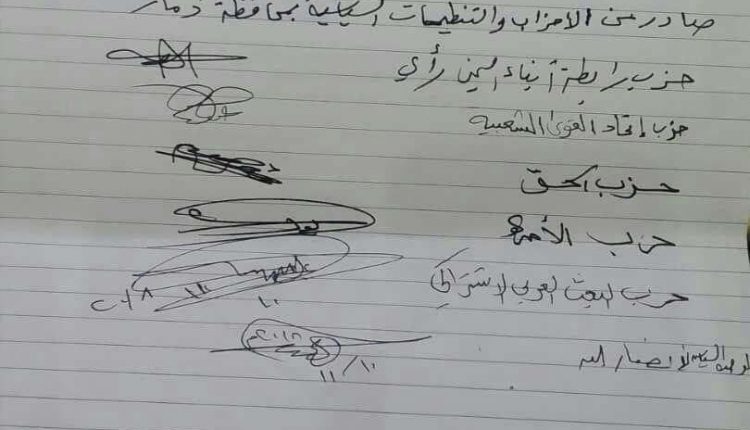 صادر عن الأحزاب والتنظيمات السياسية بمحافظة ذمار
حزب رابطة أبناء اليمن رأي
حزب إتحاد القوى الشعبية
حزب الحق
حزب الأمة
حزب البعث العربي الاشتراكي
السياسية لأنصار الله
١١/١٠